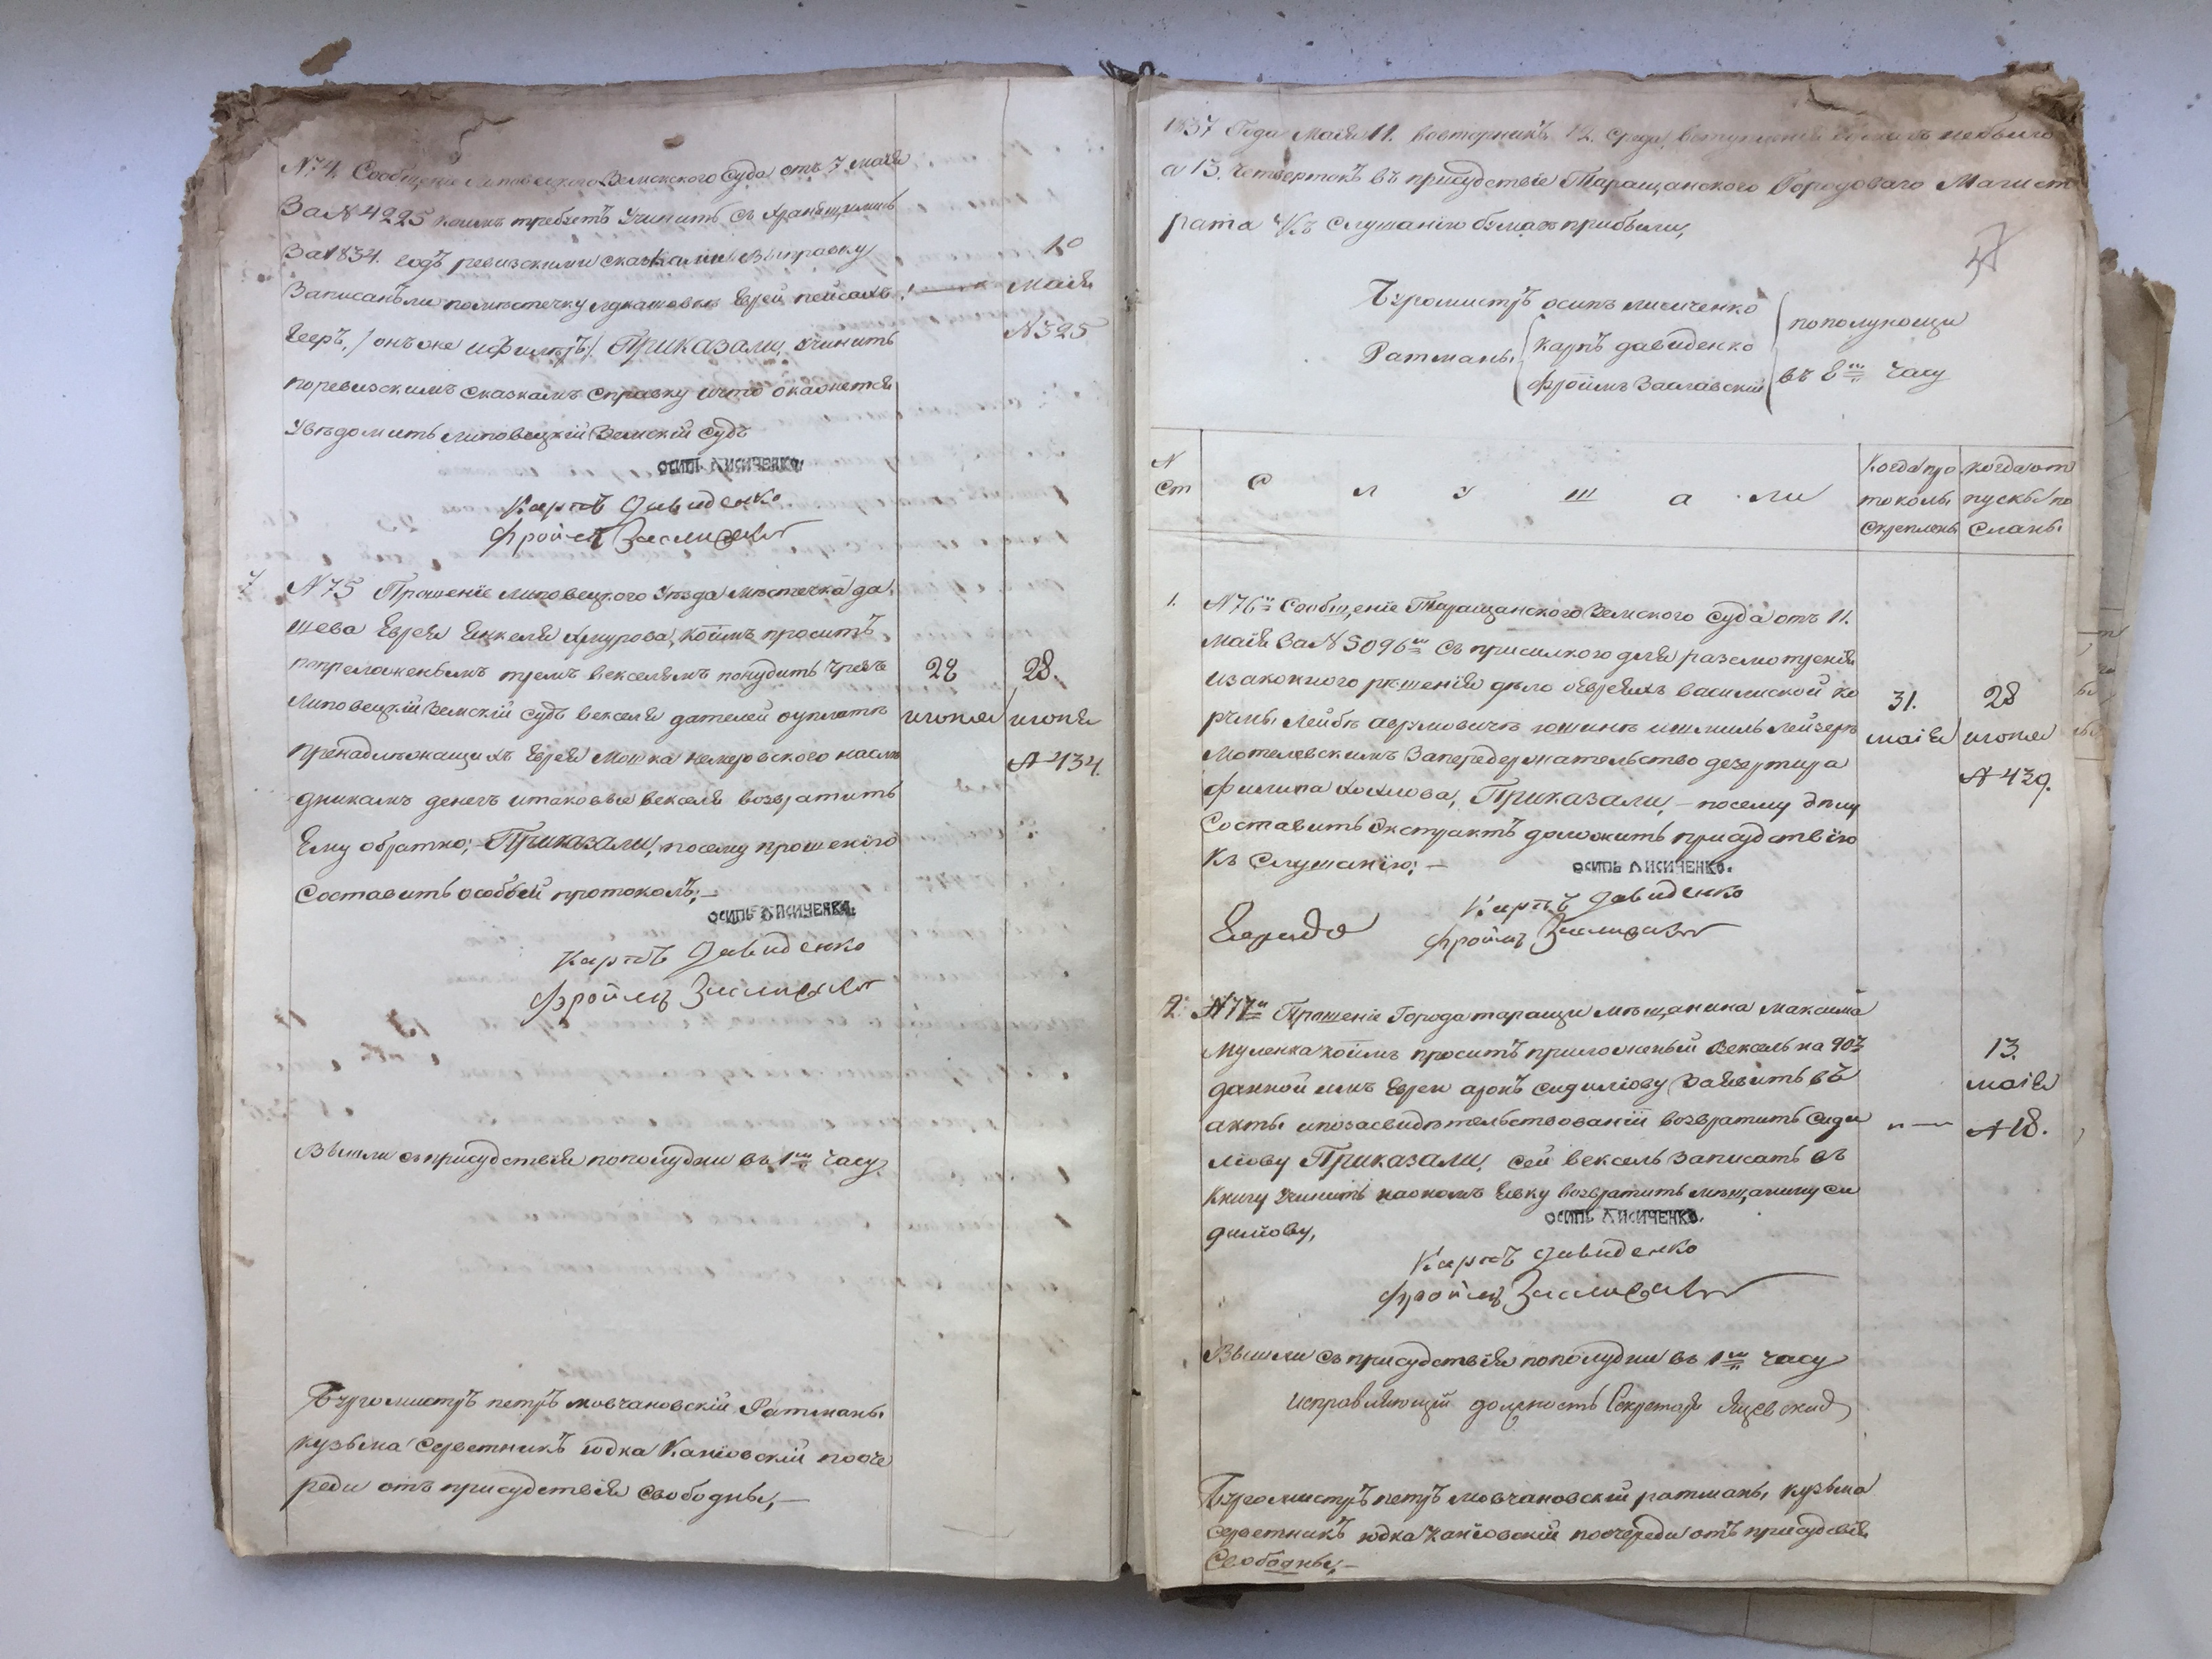 N 74. Сообщение Липовецкого Земского Суда отъ 7 маія
За N 4225 коимъ требуетъ Учинить съ хранящимись
За 1834. годъ ревизскими сказками выправку
Записанъ ли по мѣстечку Лукашовкѣ Еврей пейсахъ
10
маія
N 325
онъ же Приказали, учинить
поревизскимъ сказкамъ справку ичто окажется
Увѣдомить липовецкій Земскій судъ
ОСИПЪ ЛИСИЧЕНКО.
Карпъ Давиденко
Фроимъ Заславскій
7 N 75 Прошеніе Липовецкого уѣзда мѣстечка да
шева Еврея Енкеля хмурова, коимъ проситъ
попреложенымъ тремъ векселямъ понудить чрезъ
Липовецкій Земскій судъ векселя дателей оуплатѣ
пренадлѣжащихъ Еврея Мошка немеровского наслѣ
дникамъ денегъ итаковые векселя возвратить
Ему обратно; Приказали, посему прошенію
Составить особый протоколъ;—
28
июня
28.
июня
N 434.
ОСИПЪ ЛИСИЧЕНКО.
Карпъ Давиденко
Фроимъ Заславскій
Вышли съ присудствія пополудни въ 1м часу
Бургомистръ петръ мовчановскій Ратманы
кузьма Серветникъ юдка Каніовскій пооче
реди отъ присудствія Свободны,—
1837 Года Маія 11. вовторникъ 12. Среду, вступленія небыло
а 13. Четвертокъ въ присудствіе Таращанского Городоваго Магист
рата Къ Слушанію бумагъ прибыли,
Бургомистръ осипъ лисиченко
Ратманы
карпъ давиденко
фроимъ Заславскій
пополуночи
въ 8м часу
N
Ст
С л у ш а ли
Когда про
токолы
Скреплены
когда от
пускы по
сланы
1. N 76й Сообщеніе Таращанского Земского Суда отъ 11.
маія За N 5096м съ присилкою для разсмотренія
изаконого рѣшенія дѣло оЕвреяхъ василиской ко
рчмы Лейбѣ аврумовичѣ
Мотелевскимъ Запередержательство дезертира
филипа хохлова, Приказали,— посему дѣлу
Составить Экстрактъ доложить присудствію
къ слушанію;—
31.
маія
28
июня
N 439.
ОСИПЪ ЛИСИЧЕНКО.
Карпъ Давиденко
Фроимъ Заславскій
2. N 77й Прошеніе Города таращи мѣщанина максима
Муленка коимъ проситъ приложеный вексель на 90 р
данной имъ Еврею аронъ сидиліову Заявить въ
акты ипозасвидѣтельствованіи возвратить Сиди
ліову Приказали, сей вексель Записать въ
книгу учинить наономъ Явку возвратить мѣщанину си
диліову,
13.
маія
N 18.
ОСИПЪ ЛИСИЧЕНКО.
Карпъ Давиденко
Фроимъ Заславскій
Вышли съ присудствія пополудни въ 1м часу
исправляющій должность Секретаря Яцевскій
Бургомистръ петръ Мовчановскій ратманы кузьма
серветникъ юдка каніовскій поочереди отъ присудсвія
Свободны,—